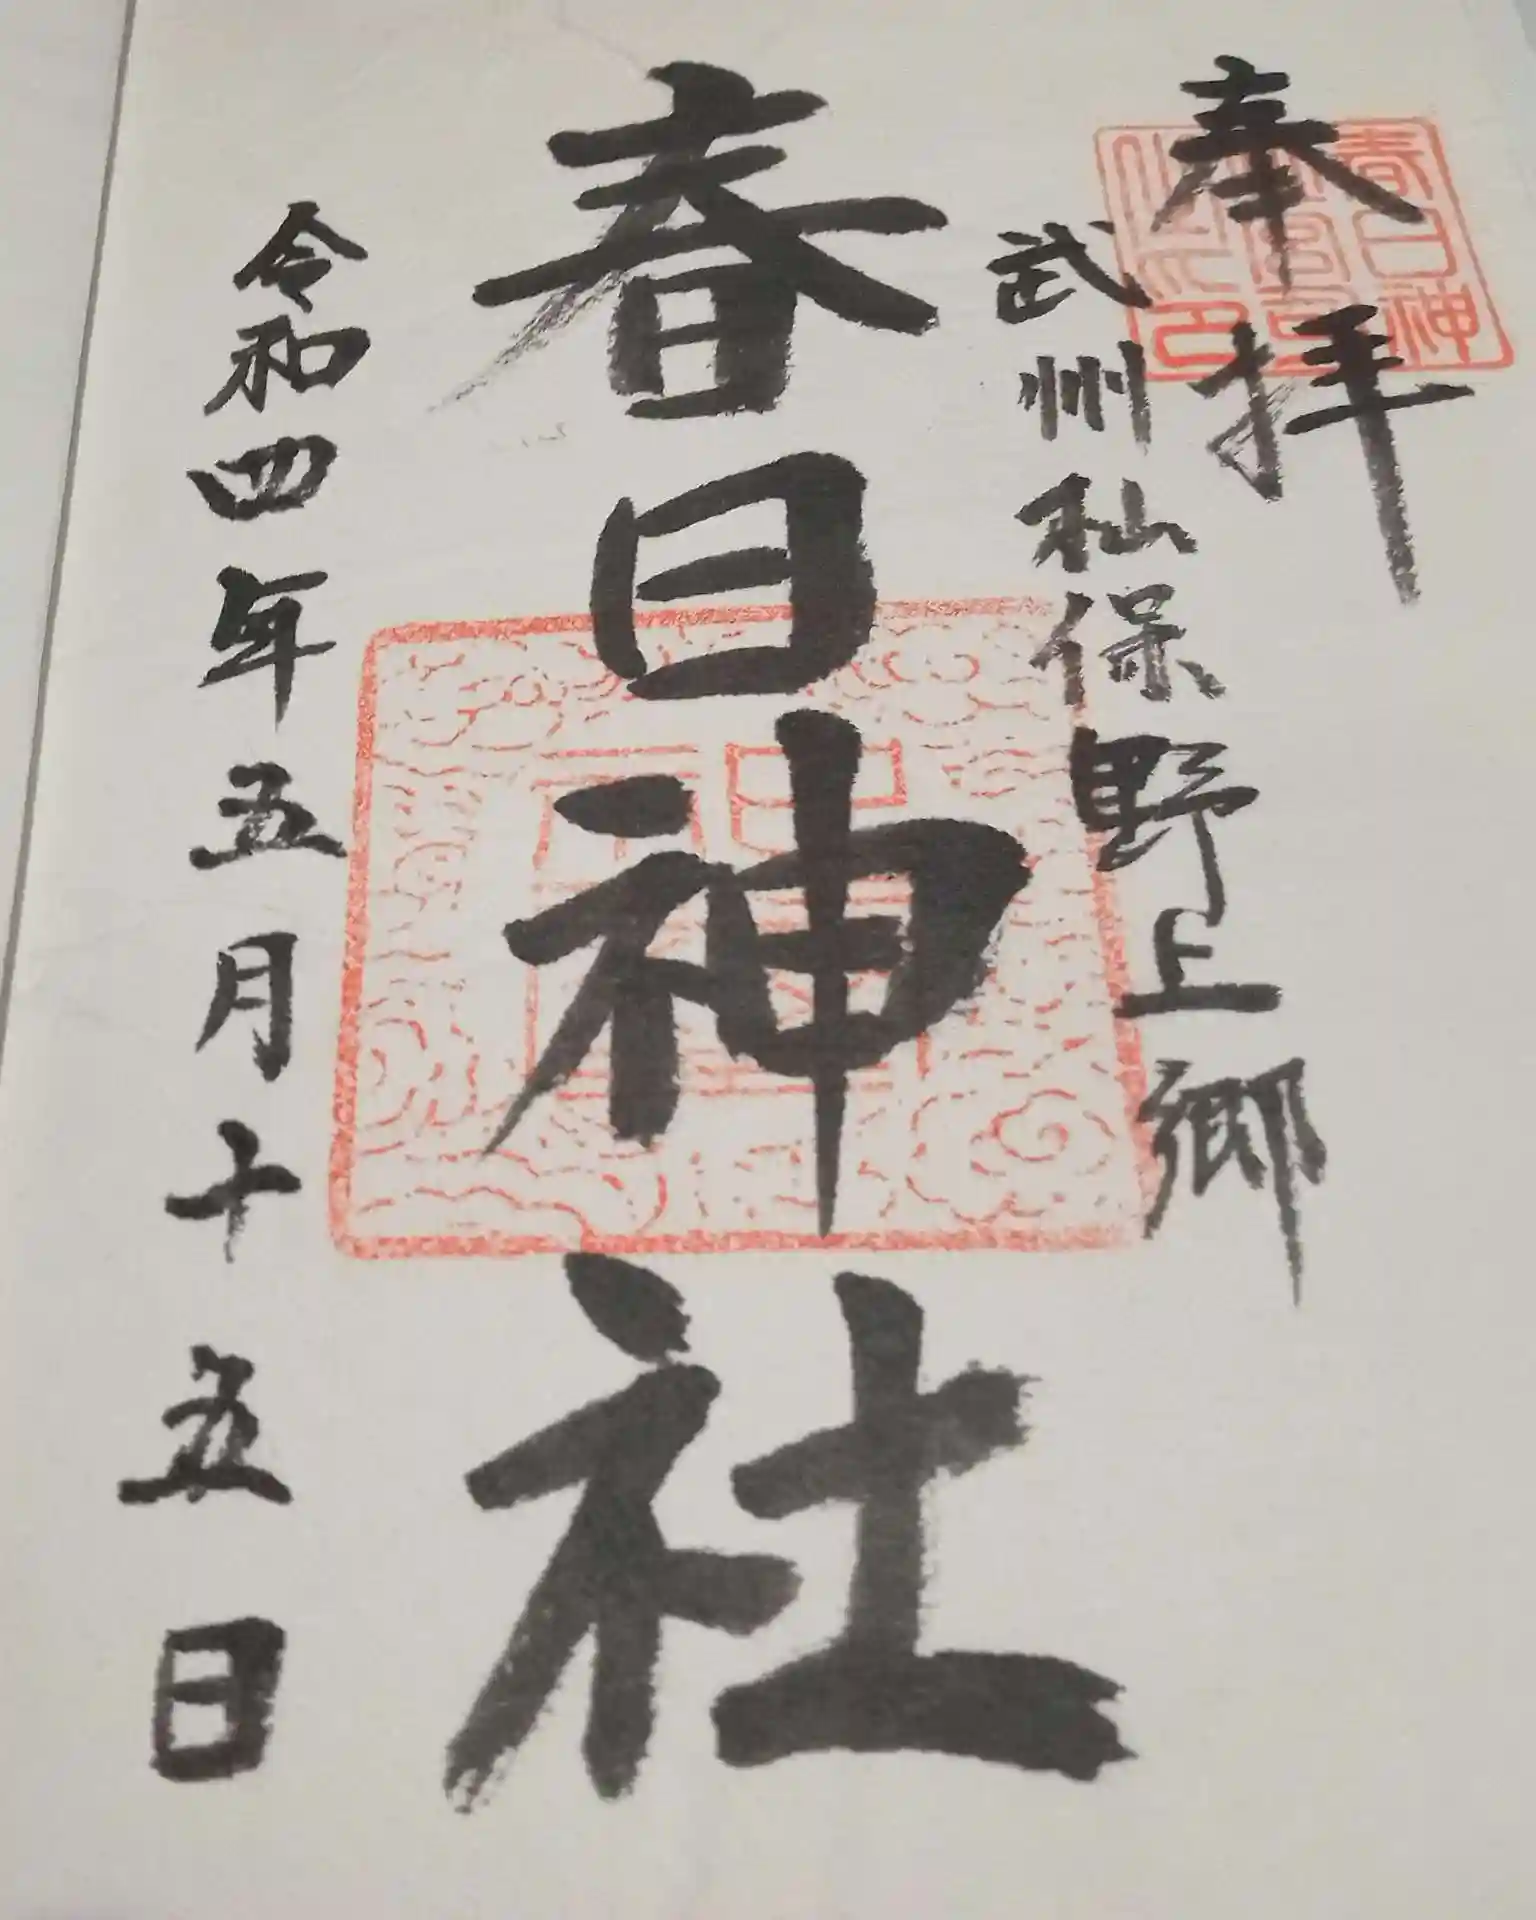 奉拝
武州杣保野上郷
春日神社
令和四年五月十五日
春日神
社宮司
之印